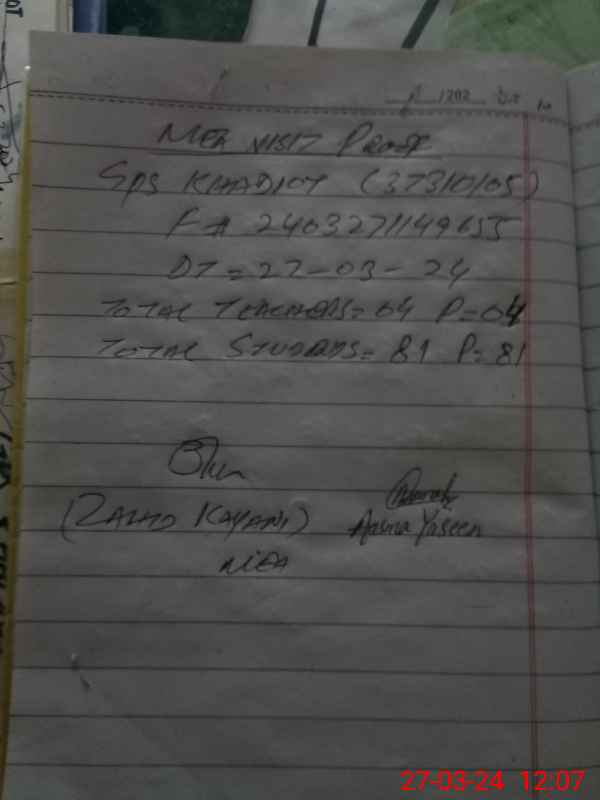 MEA VISIT PROOF
GPS KHADIOT (37310105)
F# 2403271149655
DT = 27-03-24
TOTAL TEACHERS = 04 P=04
TOTAL STUDENTS = 81 P=81
(ZAHID KAYANI)
Aasma Yaseen
MEA
27-03-24 12:07